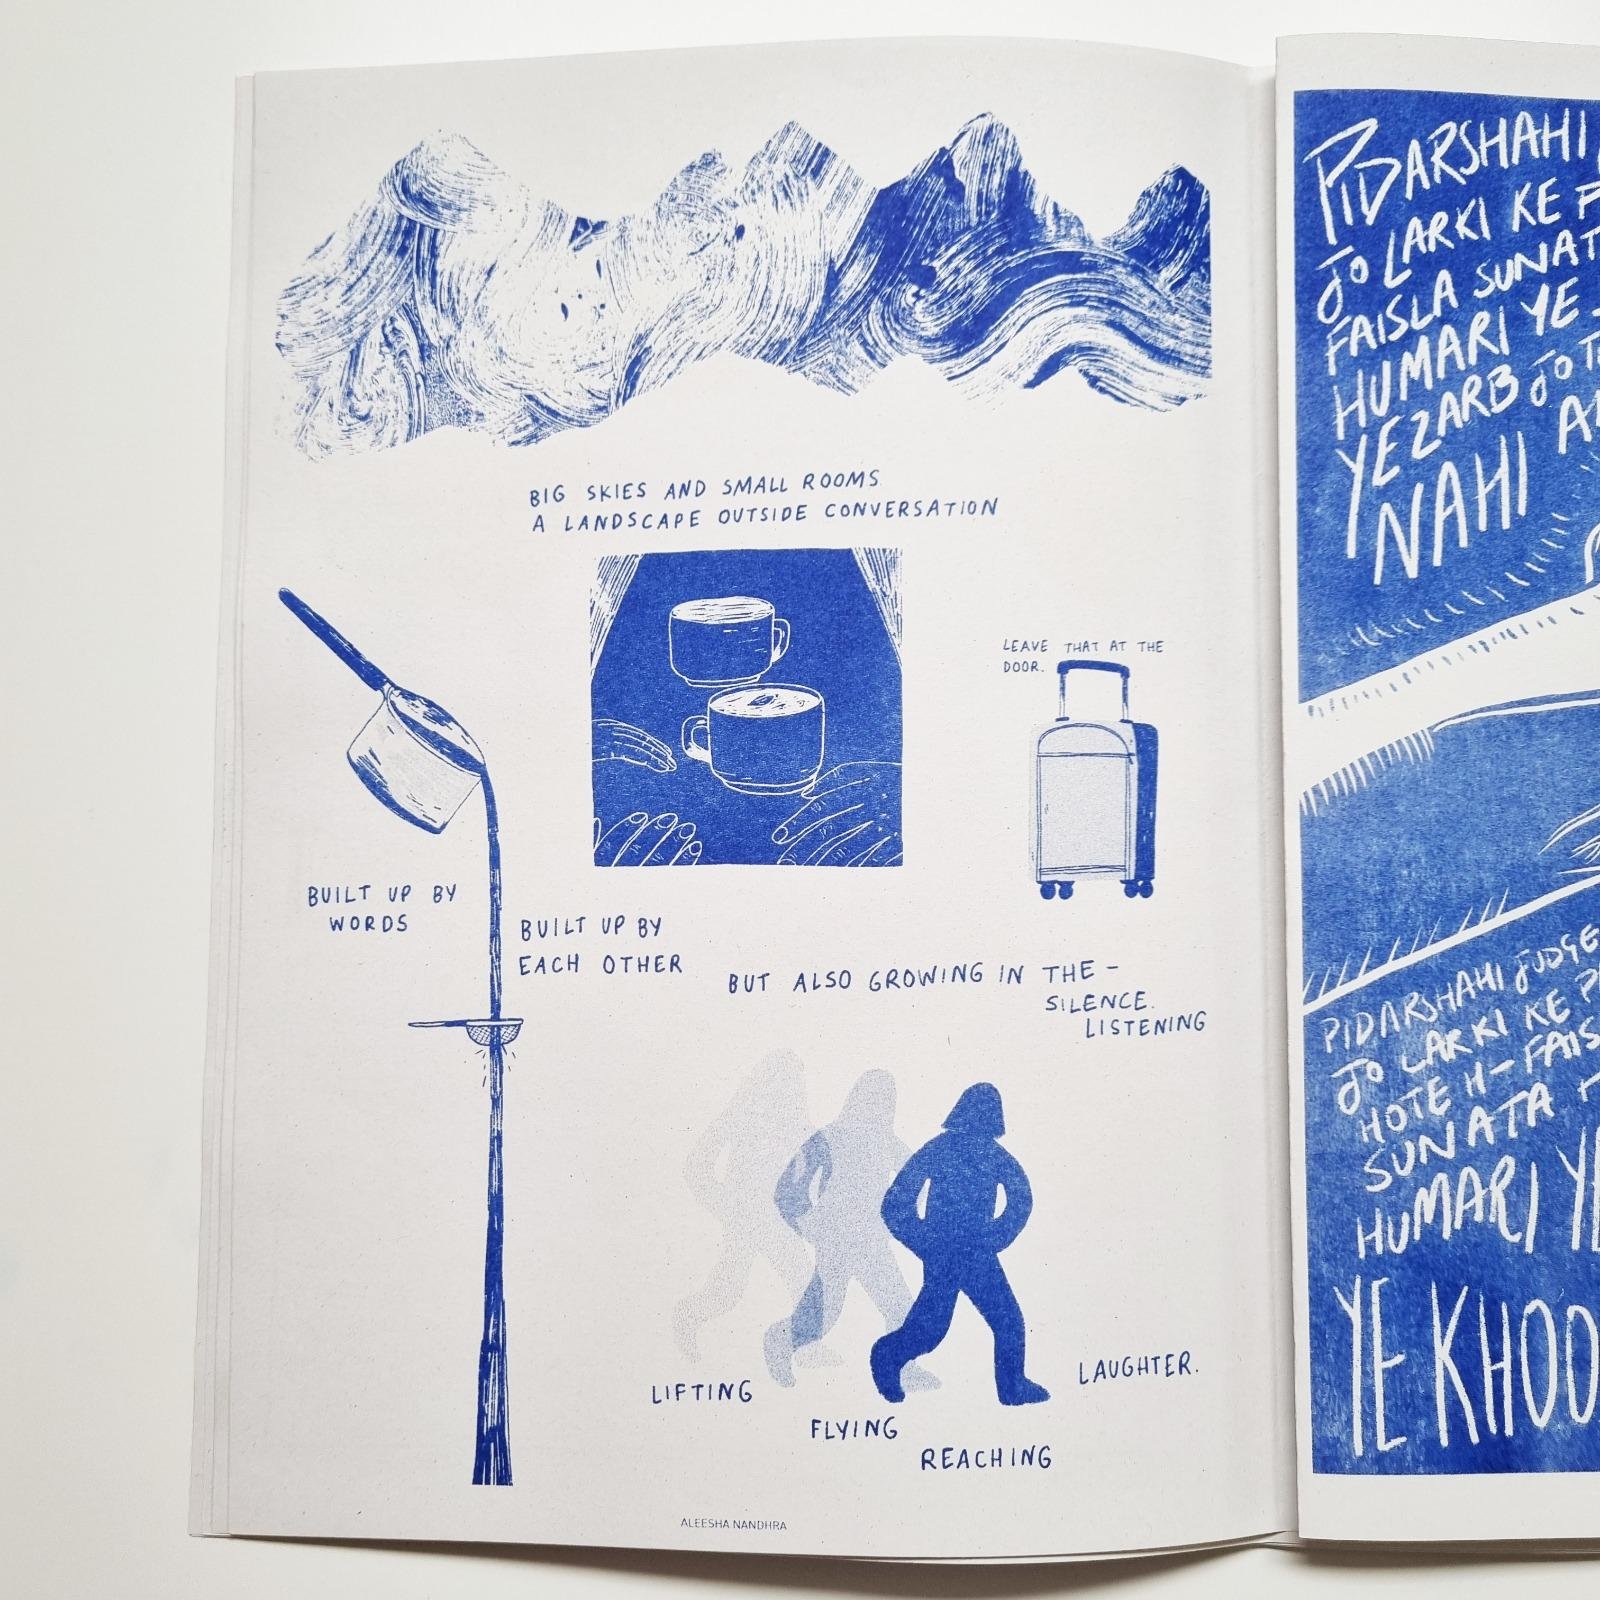 BIG SKIES AND SMALL ROOMS
A LANDSCAPE OUTSIDE CONVERSATION
LEAVE THAT AT THE
DOOR.
BUILT UP BY
WORDS
BUILT UP BY
EACH OTHER
BUT ALSO GROWING IN THE –
SILENCE.
LISTENING
LIFTING
FLYING
REACHING
LAUGHTER.
ALEESHA NANDHRA
PIDARSHAHI
JO LARKI KE
FAISLA
HUMARI YE
YE ZARB JO
NAHI
PIDARSHAHI JUDGE
JO LARKI KE
HOTE H-
SUNATA
HUMARI
YE